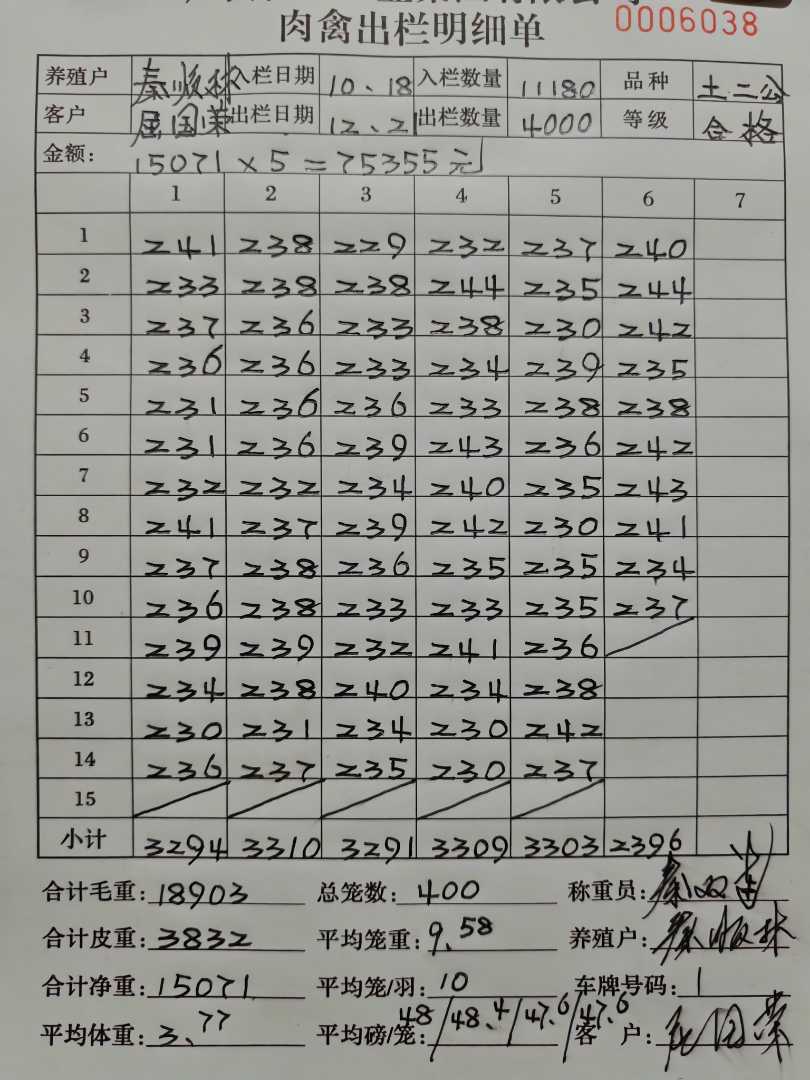 肉禽出栏明细单
0006038
养殖户 秦顺林 入栏日期 10、18 入栏数量 11180 品种 土二公
客户 屈国兼 出栏日期 12、21 出栏数量 4000 等级 合格
金额: 15071×5=75355元
1 2 3 4 5 6 7
1 241 238 229 232 237 240
2 233 238 238 244 235 244
3 237 236 233 238 230 242
4 236 236 233 234 239 235
5 231 236 236 233 238 238
6 231 236 239 243 236 242
7 232 232 234 240 235 243
8 241 237 239 242 230 241
9 237 238 236 235 235 234
10 236 238 233 233 235 237
11 239 239 232 241 236
12 234 238 240 234 238
13 230 231 234 230 242
14 236 237 235 230 237
15
小计 3294 3310 3291 3309 3303 2396
合计毛重: 18903 总笼数: 400 称重员:
合计皮重: 3832 平均笼重: 9.58 养殖户: 秦顺林
合计净重: 15071 平均笼/羽: 10 车牌号码: 1
平均体重: 3.77 平均磅/笼: 48/48.4/47.6/47.6 客 户: